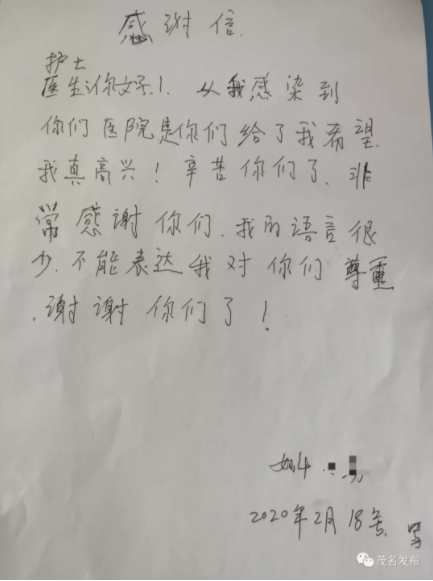 感谢信.
护士
医生你好!. 从我感染到
你们医院是你们给了我希望.
我真高兴! 辛苦你们了、非
常感谢你们、我的语言很
少.不能表达我对你们尊重
.谢谢你们了!
2020年2月18号
茂名发布